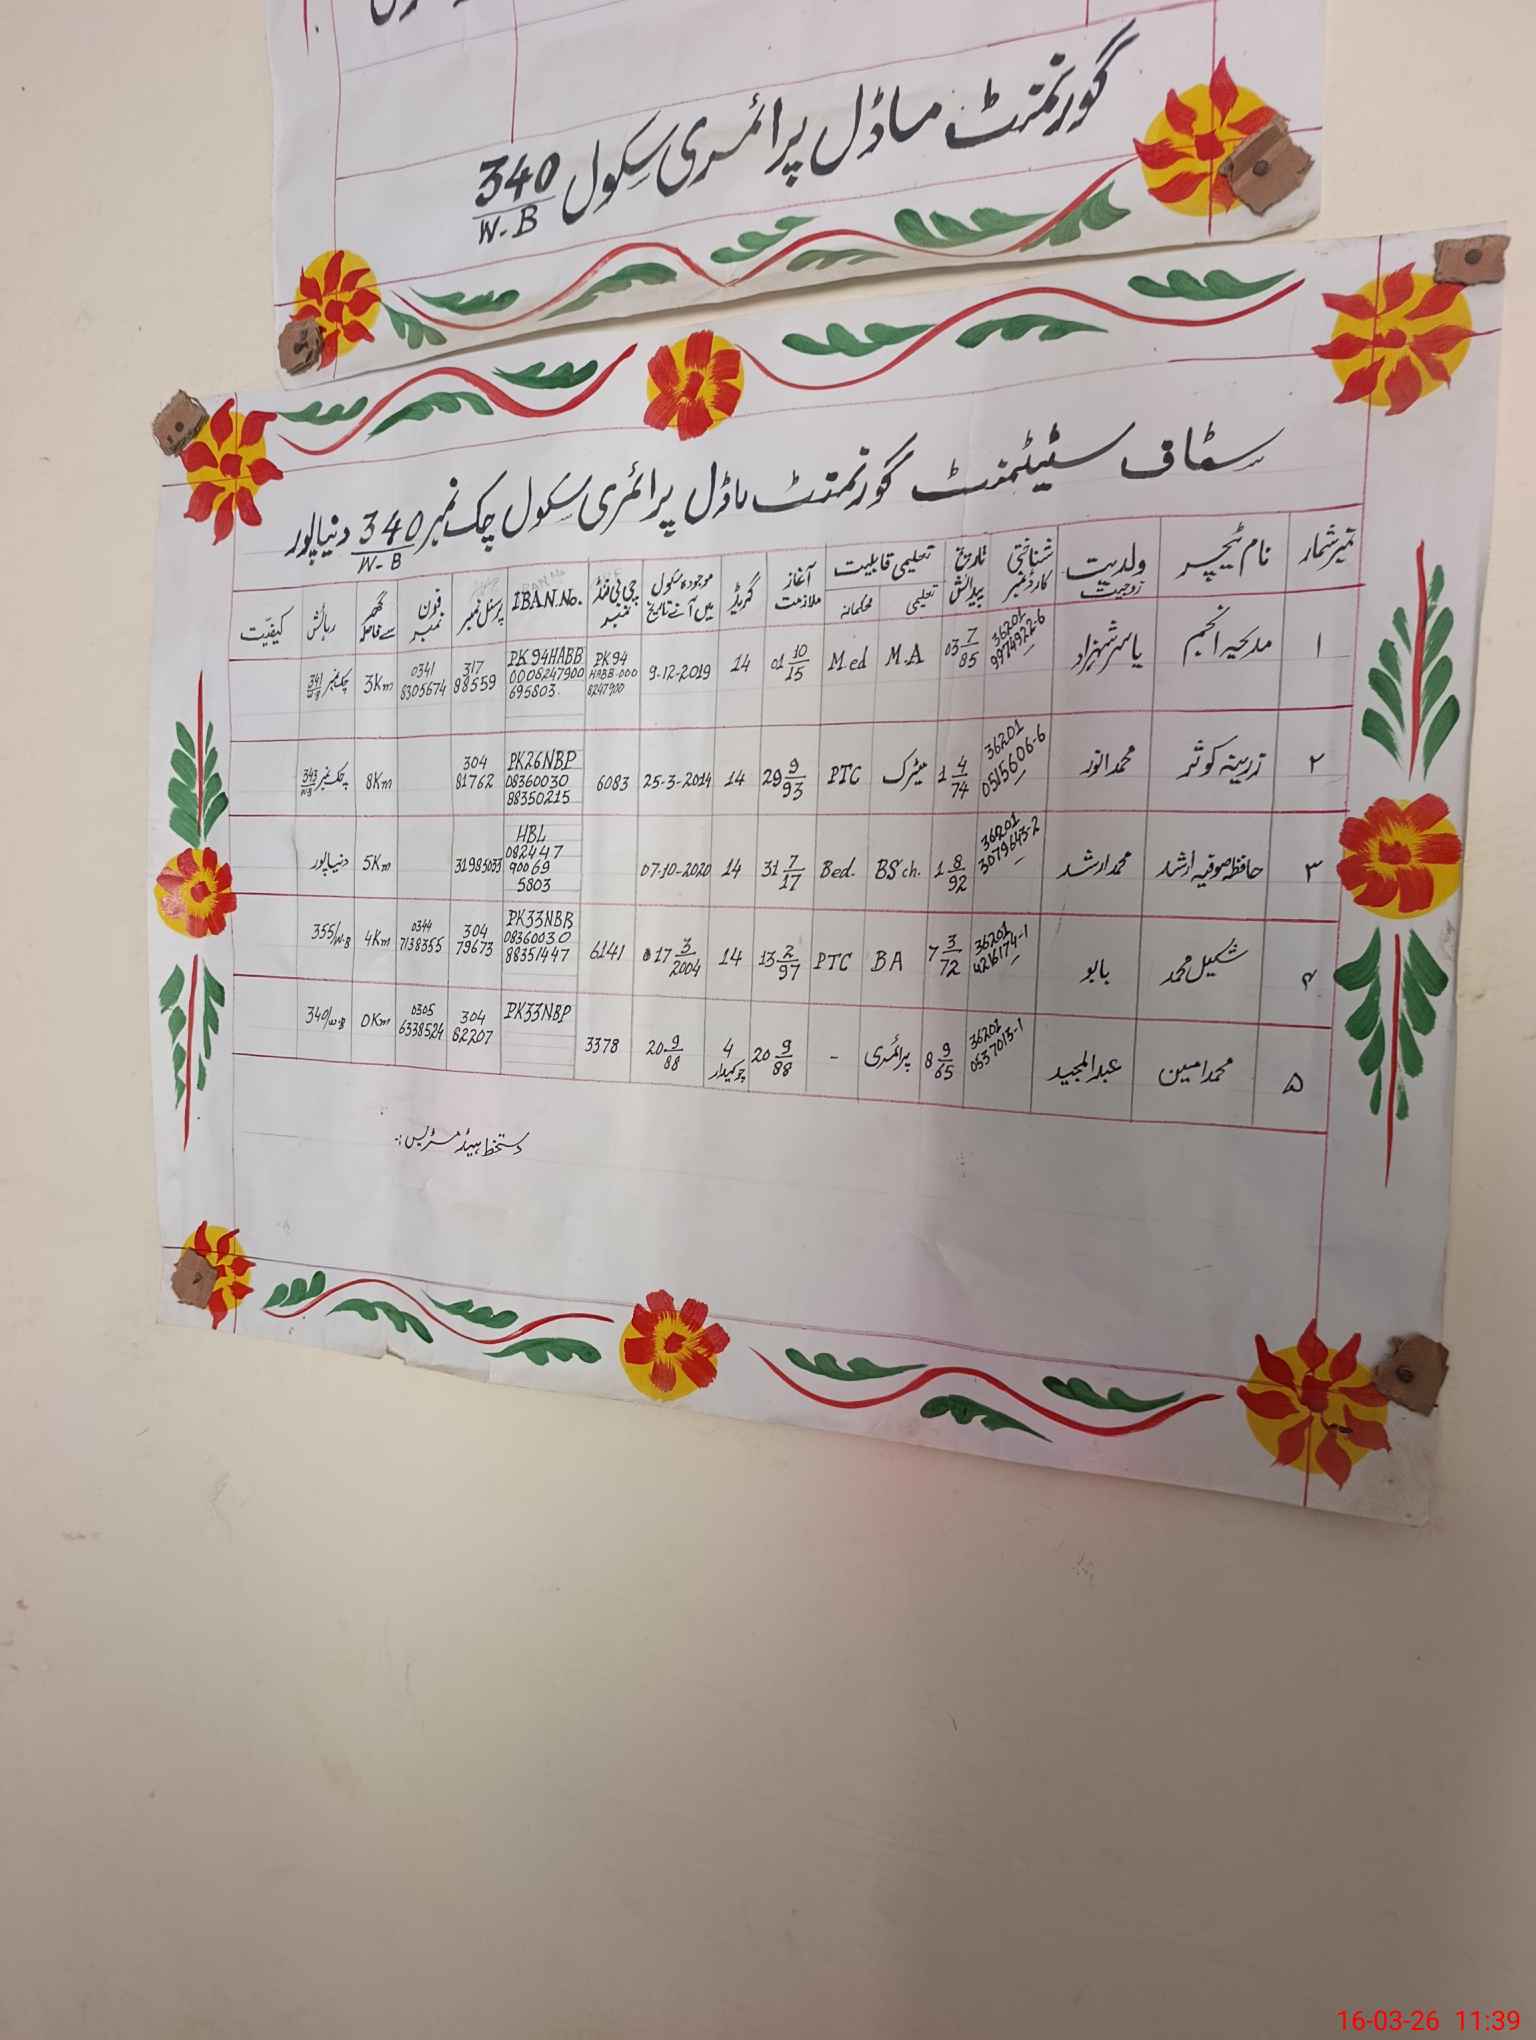 گورنمنٹ ماڈل پرائمری سکول 340/W-B
سٹاف سٹیٹمنٹ گورنمنٹ ماڈل پرائمری سکول چک نمبر 340/W-B دنیاپور
نمبرشمار نام ٹیچر ولدیت زوجیت شناختی کارڈ نمبر تاریخ پیدائش تعلیمی قابلیت تعلیمی محکمانہ آغاز ملازمت گریڈ موجودہ سکول میں آنے تاریخ جی پی فنڈ نمبر IBAN.No. پرسنل نمبر فون نمبر گھر سے فاصلہ رہائش کیفیت
۱ مدیحہ انجم یاسر شہزاد 36201 9974922-6 03 7/85 M.A Med 01 10/15 14 9-12-2019 PK94 HABB-000 8247900 PK94HABB 0008247900 695803 317 88559 0341 8305674 3Km چک نمبر 341/W-B
۲ زرینہ کوثر محمد انور 36201 0515606-6 1 4/74 میٹرک PTC 29 9/93 14 25-3-2014 6083 PK26NBP 08360030 88350215 304 81762 8Km چک نمبر 343/W-B
۳ حافظہ صوفیہ ارشد محمد ارشد 36201 3079643-2 1 8/92 BSch. Bed. 31 7/17 14 07-10-2020 HBL 082447 90069 5803 31985033 5Km دنیاپور
۴ شکیل محمد بابو 36201 4216174-1 7 3/72 BA PTC 13 2/97 14 17 3/2004 6141 PK33NBB 08360030 88351447 304 79673 0344 7138355 4Km 355/W-B
۵ محمد امین عبدالمجید 36201 0537013-1 8 9/65 پرائمری - 20 9/88 4 چوکیدار 20 9/88 3378 PK33NBP 304 82207 0305 6338524 0Km 340/W-B
دستخط ہیڈ مسٹریس:-
16-03-26 11:39